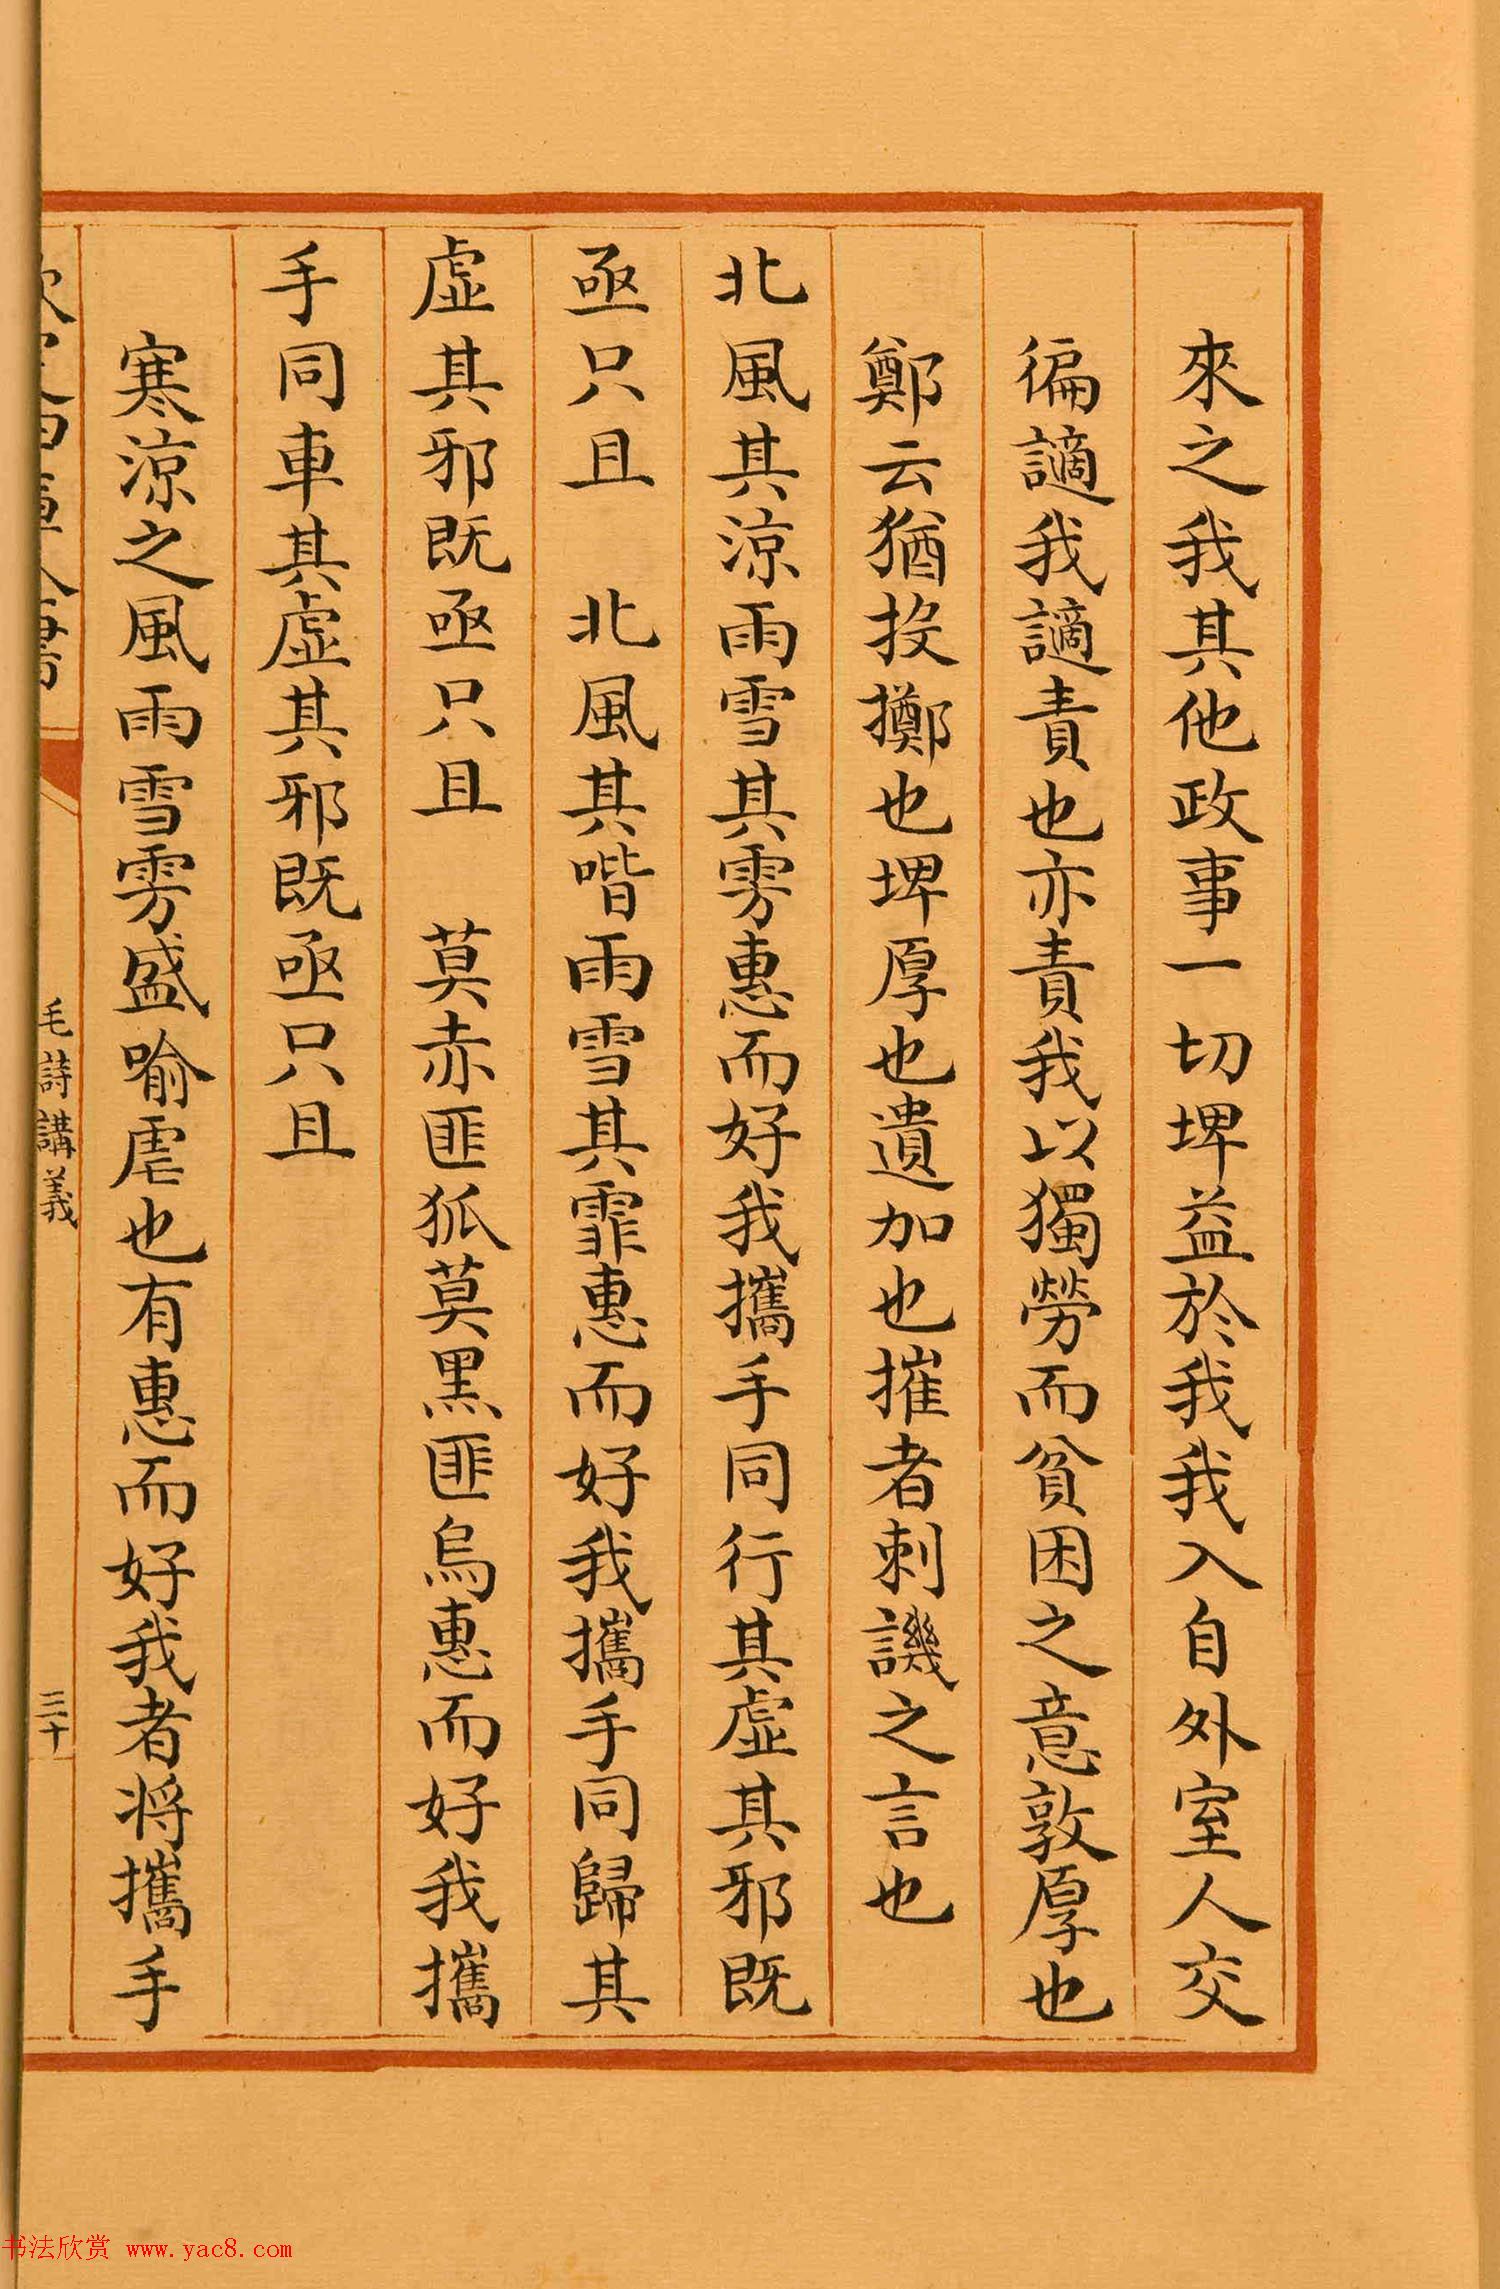 來之我其他政事一切埤益於我我入自外室人交
徧讁我讁責也亦責我以獨勞而貧困之意敦厚也
鄭云猶投擲也埤厚也遺加也摧者刺譏之言也
北風其涼雨雪其雱惠而好我攜手同行其虛其邪既
亟只且　北風其喈雨雪其霏惠而好我攜手同歸其
虛其邪既亟只且　莫赤匪狐莫黑匪烏惠而好我攜
手同車其虛其邪既亟只且
寒涼之風雨雪雱盛喻虐也有惠而好我者將攜手
欽定四庫全書
毛詩講義
三十
书法欣赏 www.yac8.com